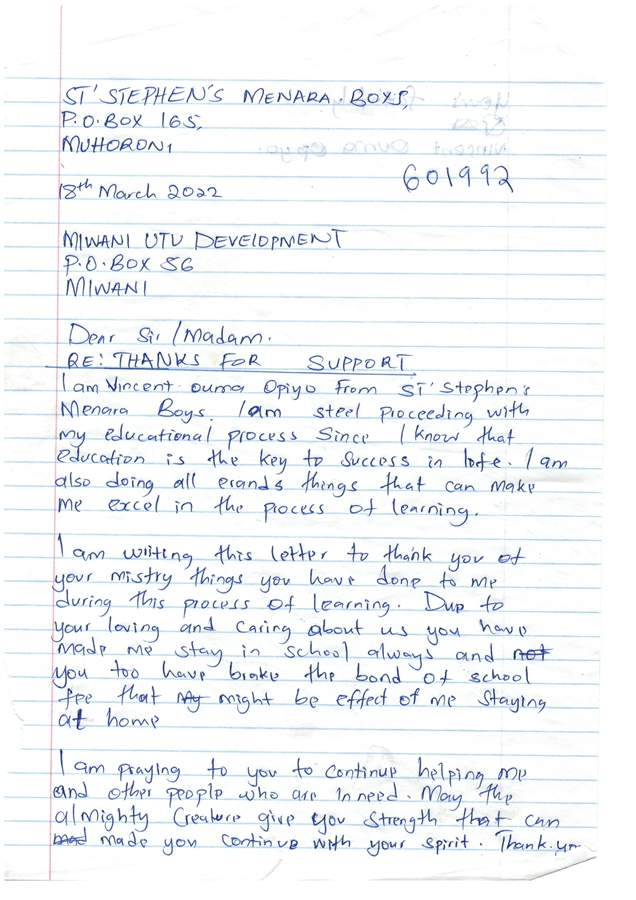 ST' STEPHEN'S MENARA BOYS,
P.O.BOX 165,
MUHORONI
601992
18th March 2022
MIWANI UTU DEVELOPMENT
P.O.BOX 56
MIWANI
Dear Sir /Madam.
RE: THANKS FOR SUPPORT
I am Vincent Ouma Opiyo From ST' Stephen's
Menara Boys. I am steel proceeding with
my educational process since I know that
education is the key to success in life. I am
also doing all erands things that can make
me excel in the process of learning.
I am writing this letter to thank you of
your mistry things you have done to me
during this process of learning. Due to
your loving and caring about us you have
made me stay in school always and not
you too have broke the bond of school
fee that my might be effect of me staying
at home
I am praying to you to continue helping me
and other people who are in need. May the
almighty Creature give you strength that can
made you continue with your spirit. Thank